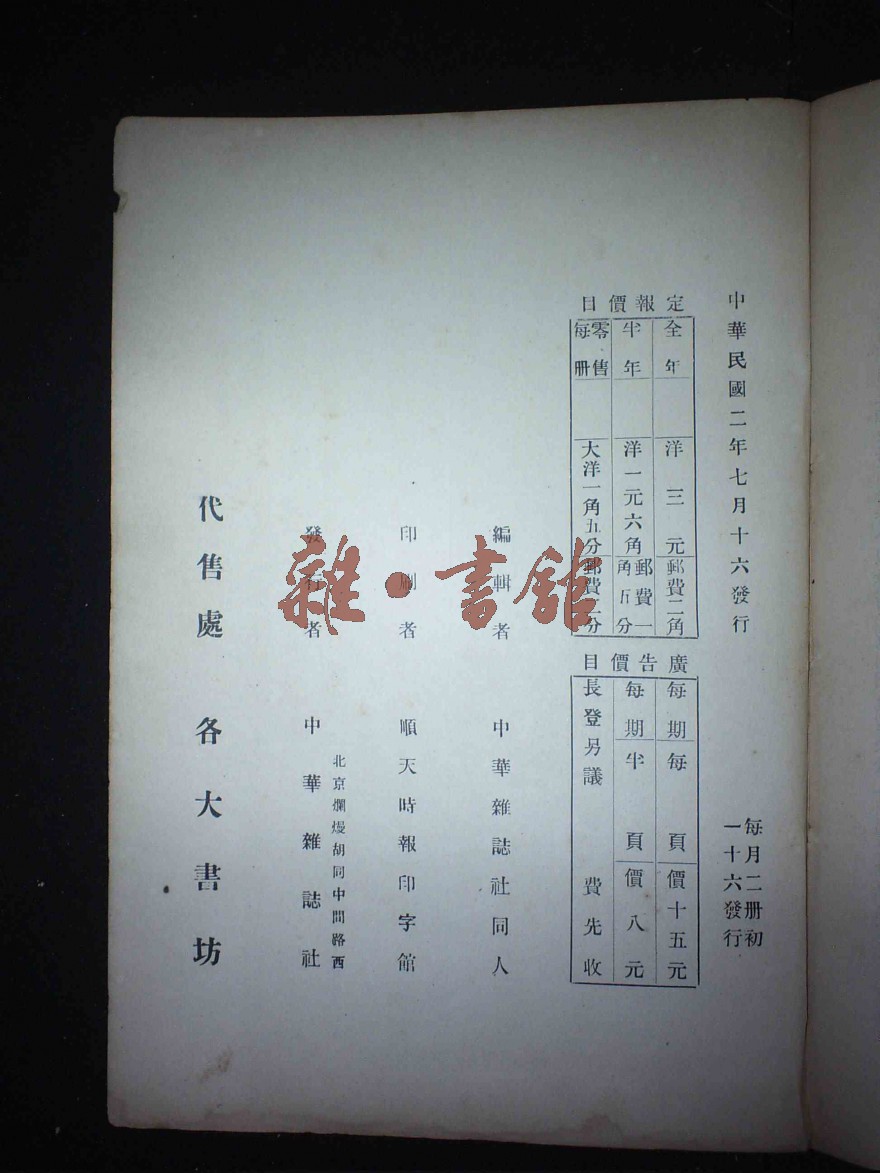 中華民國二年七月十六發行
每月二册初
一十六發行
定報價目
全年 洋三元 郵費二角
半年 洋一元六角 郵費一角五分
零售每册 大洋一角五分 郵費分
廣告價目
每期每頁 價十五元
每期半頁 價八元
長登另議 費先收
編輯者 中華雜誌社同人
印刷者 順天時報印字館
北京爛熳胡同中間路西
發行者 中華雜誌社
代售處 各大書坊
雜·書館